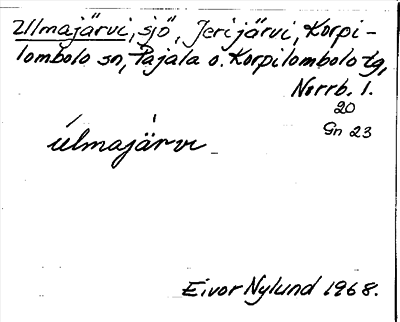 Ullmajärvi, sjö, Jerijärvi, Korpi-
lombolo sn, Pajala o. Korpilombolo tg,
Norrb. l.
20
Gn 23
úlmajä́rvi
Eivor Nylund 1968.